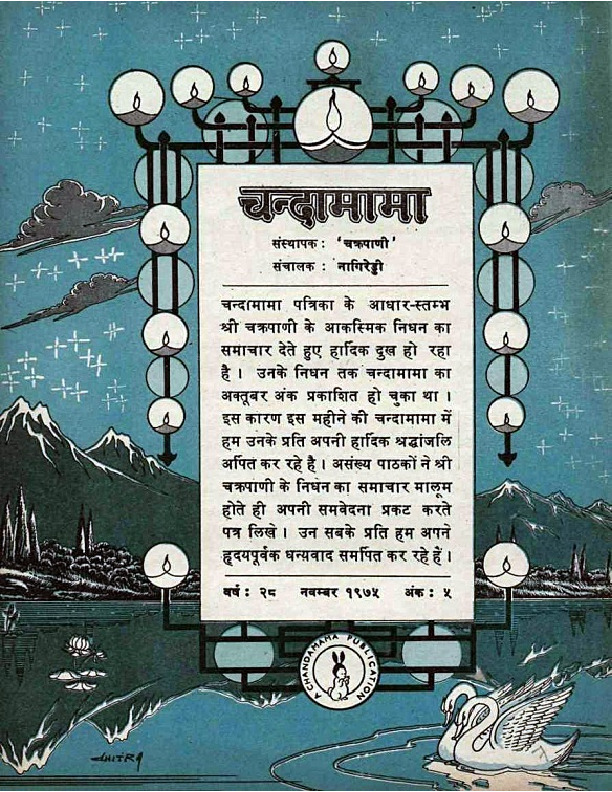 चन्दामामा
संस्थापक : 'चक्रपाणी'
संचालक : नागिरेड्डी
चन्दामामा पत्रिका के आधार-स्तम्भ
श्री चक्रपाणी के आकस्मिक निधन का
समाचार देते हुए हार्दिक दुख हो रहा
है । उनके निधन तक चन्दामामा का
अक्तूबर अंक प्रकाशित हो चुका था ।
इस कारण इस महीने की चन्दामामा में
हम उनके प्रति अपनी हार्दिक श्रद्धांजलि
अर्पित कर रहे है । असंख्य पाठकों ने श्री
चक्रपाणी के निधन का समाचार मालूम
होते ही अपनी समवेदना प्रकट करते
पत्र लिखे । उन सबके प्रति हम अपने
हृदयपूर्वक धन्यवाद समर्पित कर रहे हैं ।
वर्ष : २८ नवम्बर १९७५ अंक : ५
A CHANDAMAMA PUBLICATION
CHITRA